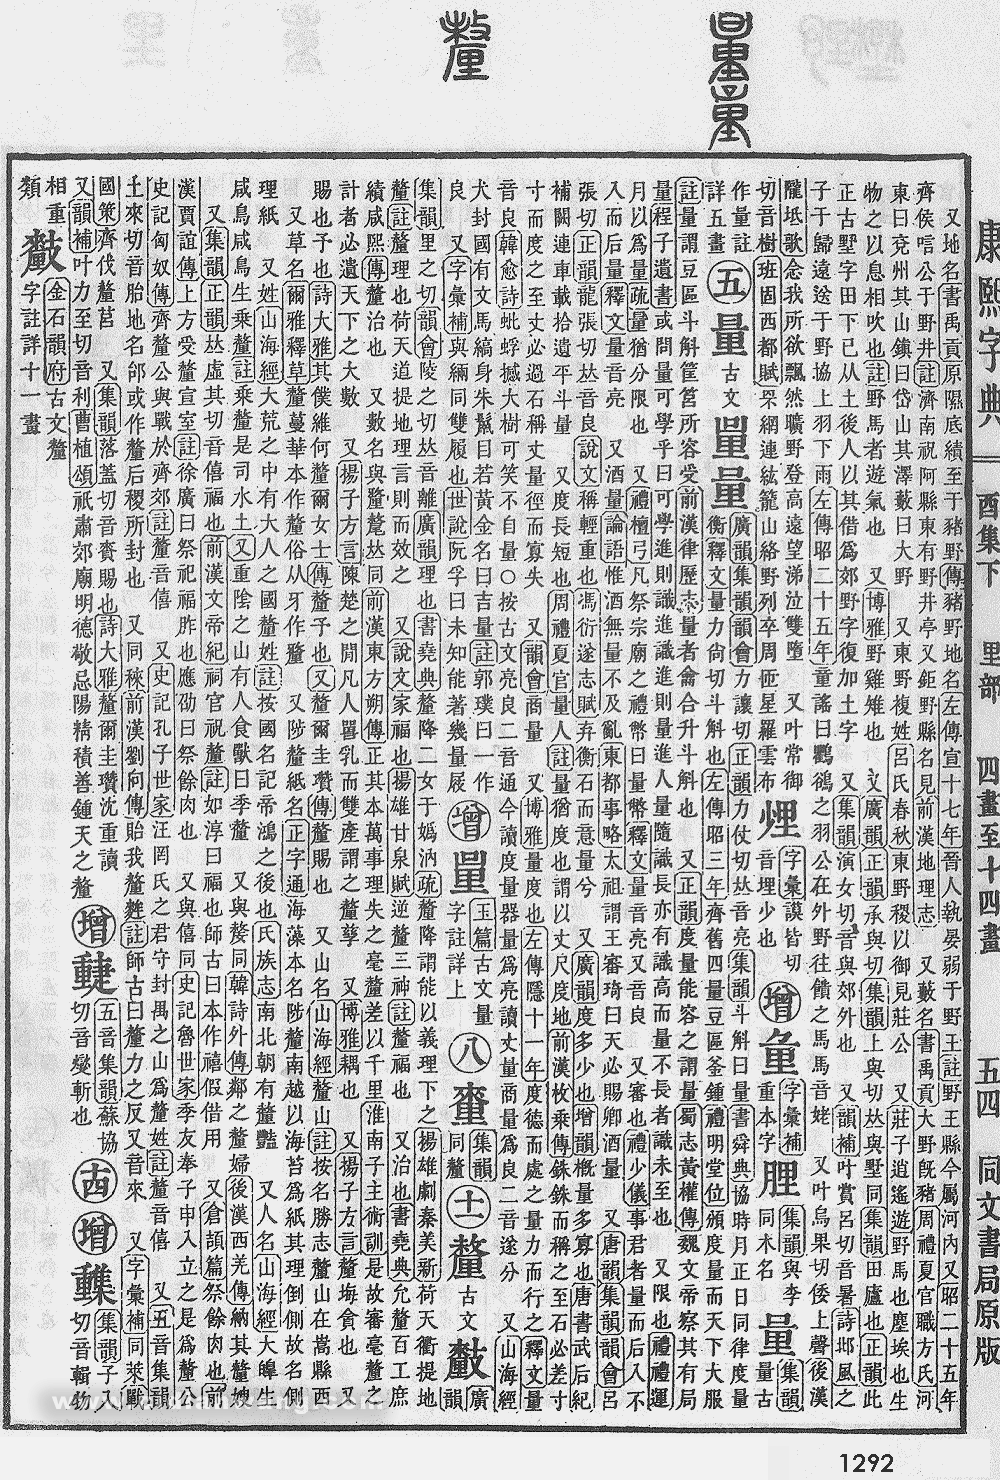 康熙字典 酉集下 里部 四畫至十四畫 五四 同文書局原版
又地名書禹貢原隰底績至于豬野傳豬野地名左傳宣十七年晉人執晏弱于野王註野王縣今屬河內又昭二十五年
齊侯唁公于野井註濟南祝阿縣東有野井亭又鉅野縣名見前漢地理志 又藪名書禹貢大野旣豬周禮夏官職方氏河
東曰兗州其山鎮曰岱山其澤藪曰大野 又東野複姓呂氏春秋東野稷以御見莊公 又莊子逍遙遊野馬也塵埃也生
物之以息相吹也註野馬者遊氣也 又博雅野雞雉也 又廣韻正韻承與切集韻上與切𠀤與墅同集韻田廬也正韻此
正古墅字田下已从土後人以其借爲郊野字復加土字 又集韻演女切音與郊外也 又韻補叶賞呂切音暑詩邶風之
子于歸遠送于野協上羽下雨左傳昭二十五年童謠曰鸜鵒之羽公在外野往饋之馬馬音姥 又叶烏果切倭上聲後漢
隴坻歌念我所欲飄然曠野登高遠望涕泣雙墮 又叶常御
切音樹班固西都賦罘網連紘籠山絡野列卒周匝星羅雲布
字彙謨皆切
音埋少也
增
字彙補
重本字
集韻與李
同木名
量
集韻量古
作量註
詳五畫
五
量
古文
量量
廣韻集韻韻會力讓切正韻力仗切𠀤音亮集韻斗斛曰量書舜典協時月正日同律度量
衡釋文量力尙切斗斛也左傳昭三年齊舊四量豆區釜鍾禮明堂位頒度量而天下大服
註量謂豆區斗斛筐筥所容受前漢律歷志量者龠合升斗斛也 又正韻度量能容之謂量蜀志黃權傳魏文帝察其有局
量程子遺書或問量可學乎曰可學進則識進識進則量進人量隨識長亦有識高而量不長者識未至也 又限也禮禮運
月以爲量疏量猶分限也 又禮檀弓凡祭宗廟之禮幣曰量幣釋文量音亮又音良 又審也禮少儀事君者量而后入不
入而后量釋文量音亮 又酒量論語惟酒無量不及亂東都事略太祖謂王審琦曰天必賜卿酒量 又唐韻集韻韻會呂
張切正韻龍張切𠀤音良說文稱輕重也馮衍遂志賦弃衡石而意量兮 又廣韻度多少也增韻槪量多寡也唐書武后紀
補闕連車載拾遺平斗量 又度長短也周禮夏官量人註量猶度也謂以丈尺度地前漢枚乗傳銖銖而稱之至石必差寸
寸而度之至丈必過石稱丈量徑而寡失 又韻會商量 又博雅量度也左傳隱十一年度德而處之量力而行之釋文量
音良韓愈詩蚍蜉撼大樹可笑不自量○按古文亮良二音通今讀度量器量爲亮讀丈量商量爲良二音遂分 又山海經
犬封國有文馬縞身朱鬣目若黃金名曰吉量註郭璞曰一作
良 又字彙補與緉同雙屨也世說阮孚曰未知能著幾量屐
增
玉篇古文量
字註詳上
八
集韻
同釐
十一
釐
古文
廣韻
集韻里之切韻會陵之切𠀤音離廣韻理也書堯典釐降二女于嬀汭疏釐降謂能以義理下之揚雄劇秦美新荷天衢提地
釐註釐理也荷天道提地理言則而效之 又說文家福也揚雄甘泉賦逆釐三神註釐福也 又治也書堯典允釐百工庶
績咸熙傳釐治也 又數名與氂𠩺𠀤同前漢東方朔傳正其本萬事理失之毫釐差以千里淮南子主術訓是故審毫釐之
計者必遺天下之大數 又揚子方言陳楚之閒凡人嘼乳而雙產謂之釐孳 又博雅耦也 又揚子方言釐㙁貪也 又
賜也予也詩大雅其僕維何釐爾女士傳釐予也又釐爾圭瓚傳釐賜也 又山名山海經釐山註按名勝志釐山在嵩縣西
又草名爾雅釋草釐蔓華本作釐俗从牙作釐 又陟釐紙名正字通海藻本名陟釐南越以海苔爲紙其理倒側故名側
理紙 又姓山海經大荒之中有大人之國釐姓註按國名記帝鴻之後也氏族志南北朝有釐豔 又人名山海經大皥生
咸鳥咸鳥生乗釐註乗釐是司水土又重陰之山有人食獸曰季釐 又與嫠同韓詩外傳鄰之釐婦後漢西羌傳納其釐嫂
又集韻正韻𠀤虛其切音僖福也前漢文帝紀祠官祝釐註如淳曰福也師古曰本作禧假借用 又倉頡篇祭餘肉也前
漢賈誼傳上方受釐宣室註徐廣曰祭祀福胙也應劭曰祭餘肉也 又與僖同史記魯世家季友奉子申入立之是爲釐公
史記匈奴傳齊釐公與戰於齊郊註釐音僖 又史記孔子世家汪罔氏之君守封禺之山爲釐姓註釐音僖 又五音集韻
土來切音胎地名郃或作釐后稷所封也 又同秾前漢劉向傳飴我釐麰註師古曰釐力之反又音來 又字彙補同萊毆
國策齊伐釐莒 又集韻落蓋切音賚賜也詩大雅釐爾圭瓚沈重讀
又韻補叶力至切音利曹植頌祇肅郊廟明德敬忌陽精積善鍾天之釐
增
五音集韻蘇協
切音燮斬也
十四
增
集韻子入
切音輯物
相重
類
金石韻府古文釐
字註詳十一畫
1292